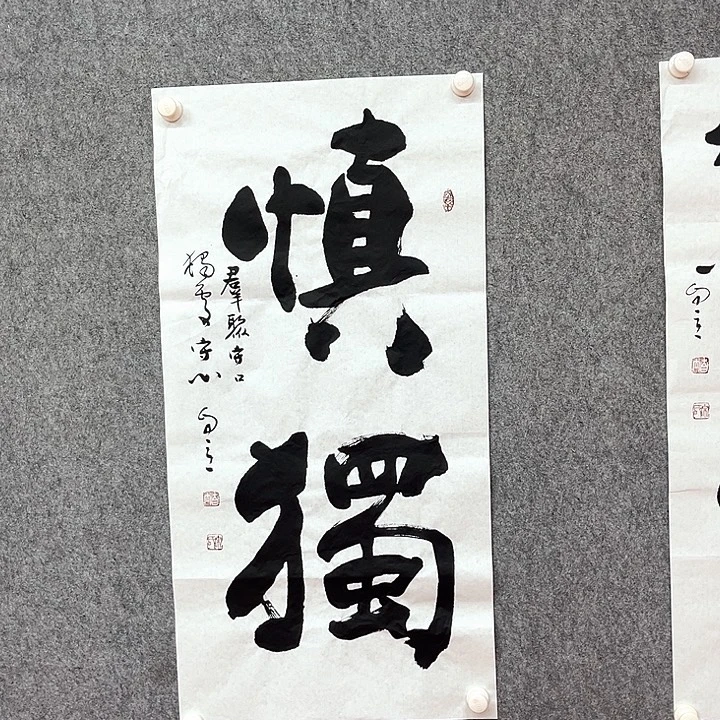 慎
獨
羣聚守口
獨處守心